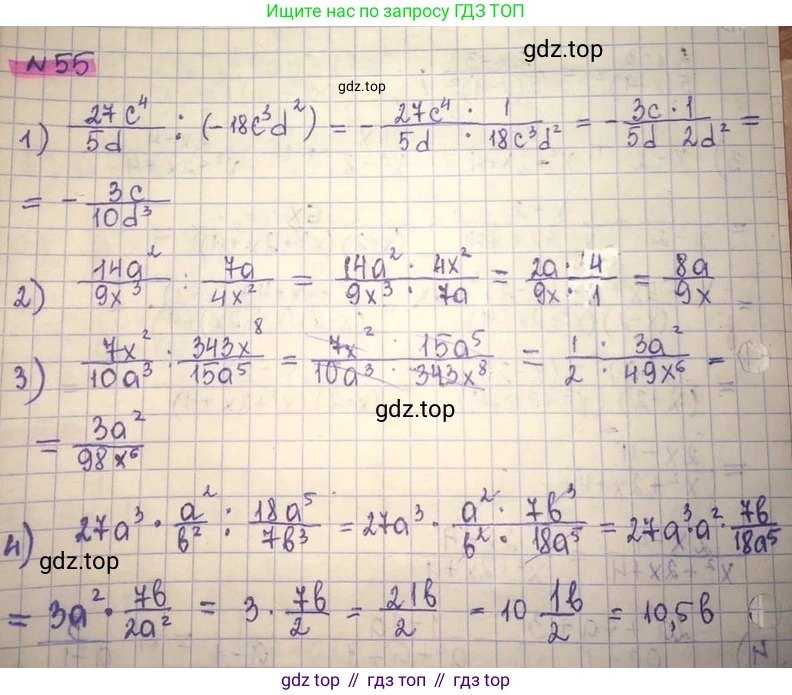 Ищите нас по запросу ГДЗ ТОП
gdz.top
№55
gdz.top
1) 27c⁴/5d : (-18c³d²) = - 27c⁴ · 1/5d · 18c³d² = - 3c · 1/5d 2d² =
= - 3c/10d³
2) 14a²/9x³ : 7a/4x² = 14a² · 4x²/9x³ · 7a = 2a · 4/9x · 1 = 8a/9x
3) 7x²/10a³ : 343x⁸/15a⁵ = 7x² · 15a⁵/10a³ · 343x⁸ = 1 · 3a²/2 · 49x⁶ =
gdz.top
= 3a²/98x⁶
4) 27a³ · a²/b² : 18a⁵/7b³ = 27a³ · a² · 7b³/b² · 18a⁵ = 27a³·a² · 7b/18a⁵
gdz.top
= 3a² · 7b/2a² = 3 · 7b/2 = 21b/2 = 10 1b/2 = 10,5b
gdz.top // гдз топ // gdz top